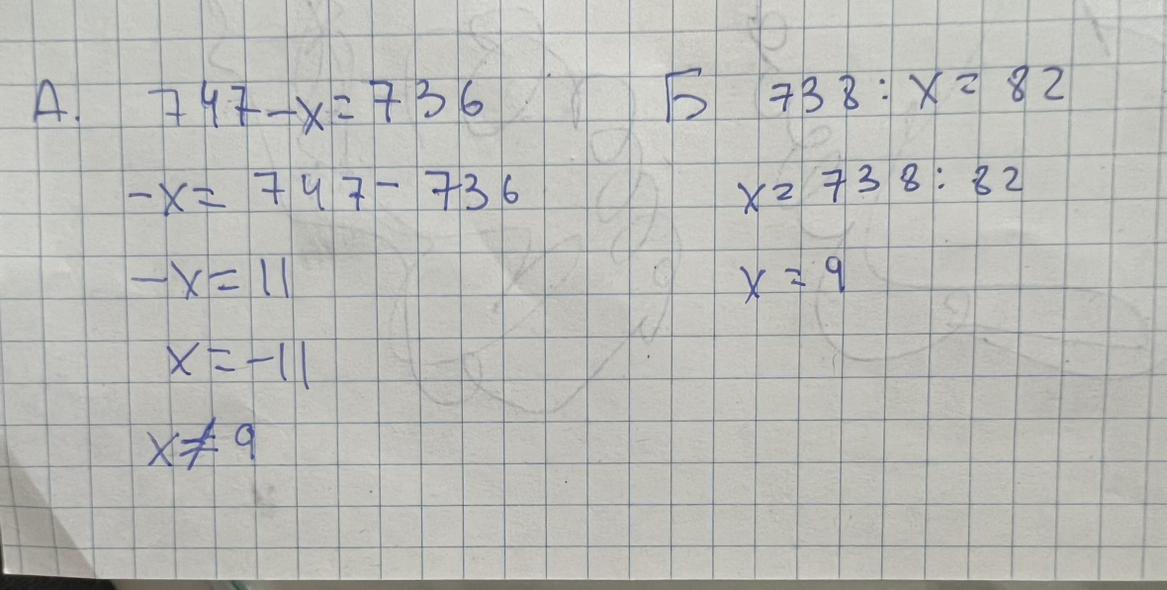 А. 747-x=736
-x= 747- 736
-x=11
x=-11
x≠9
Б 738:x=82
x=738:82
x=9